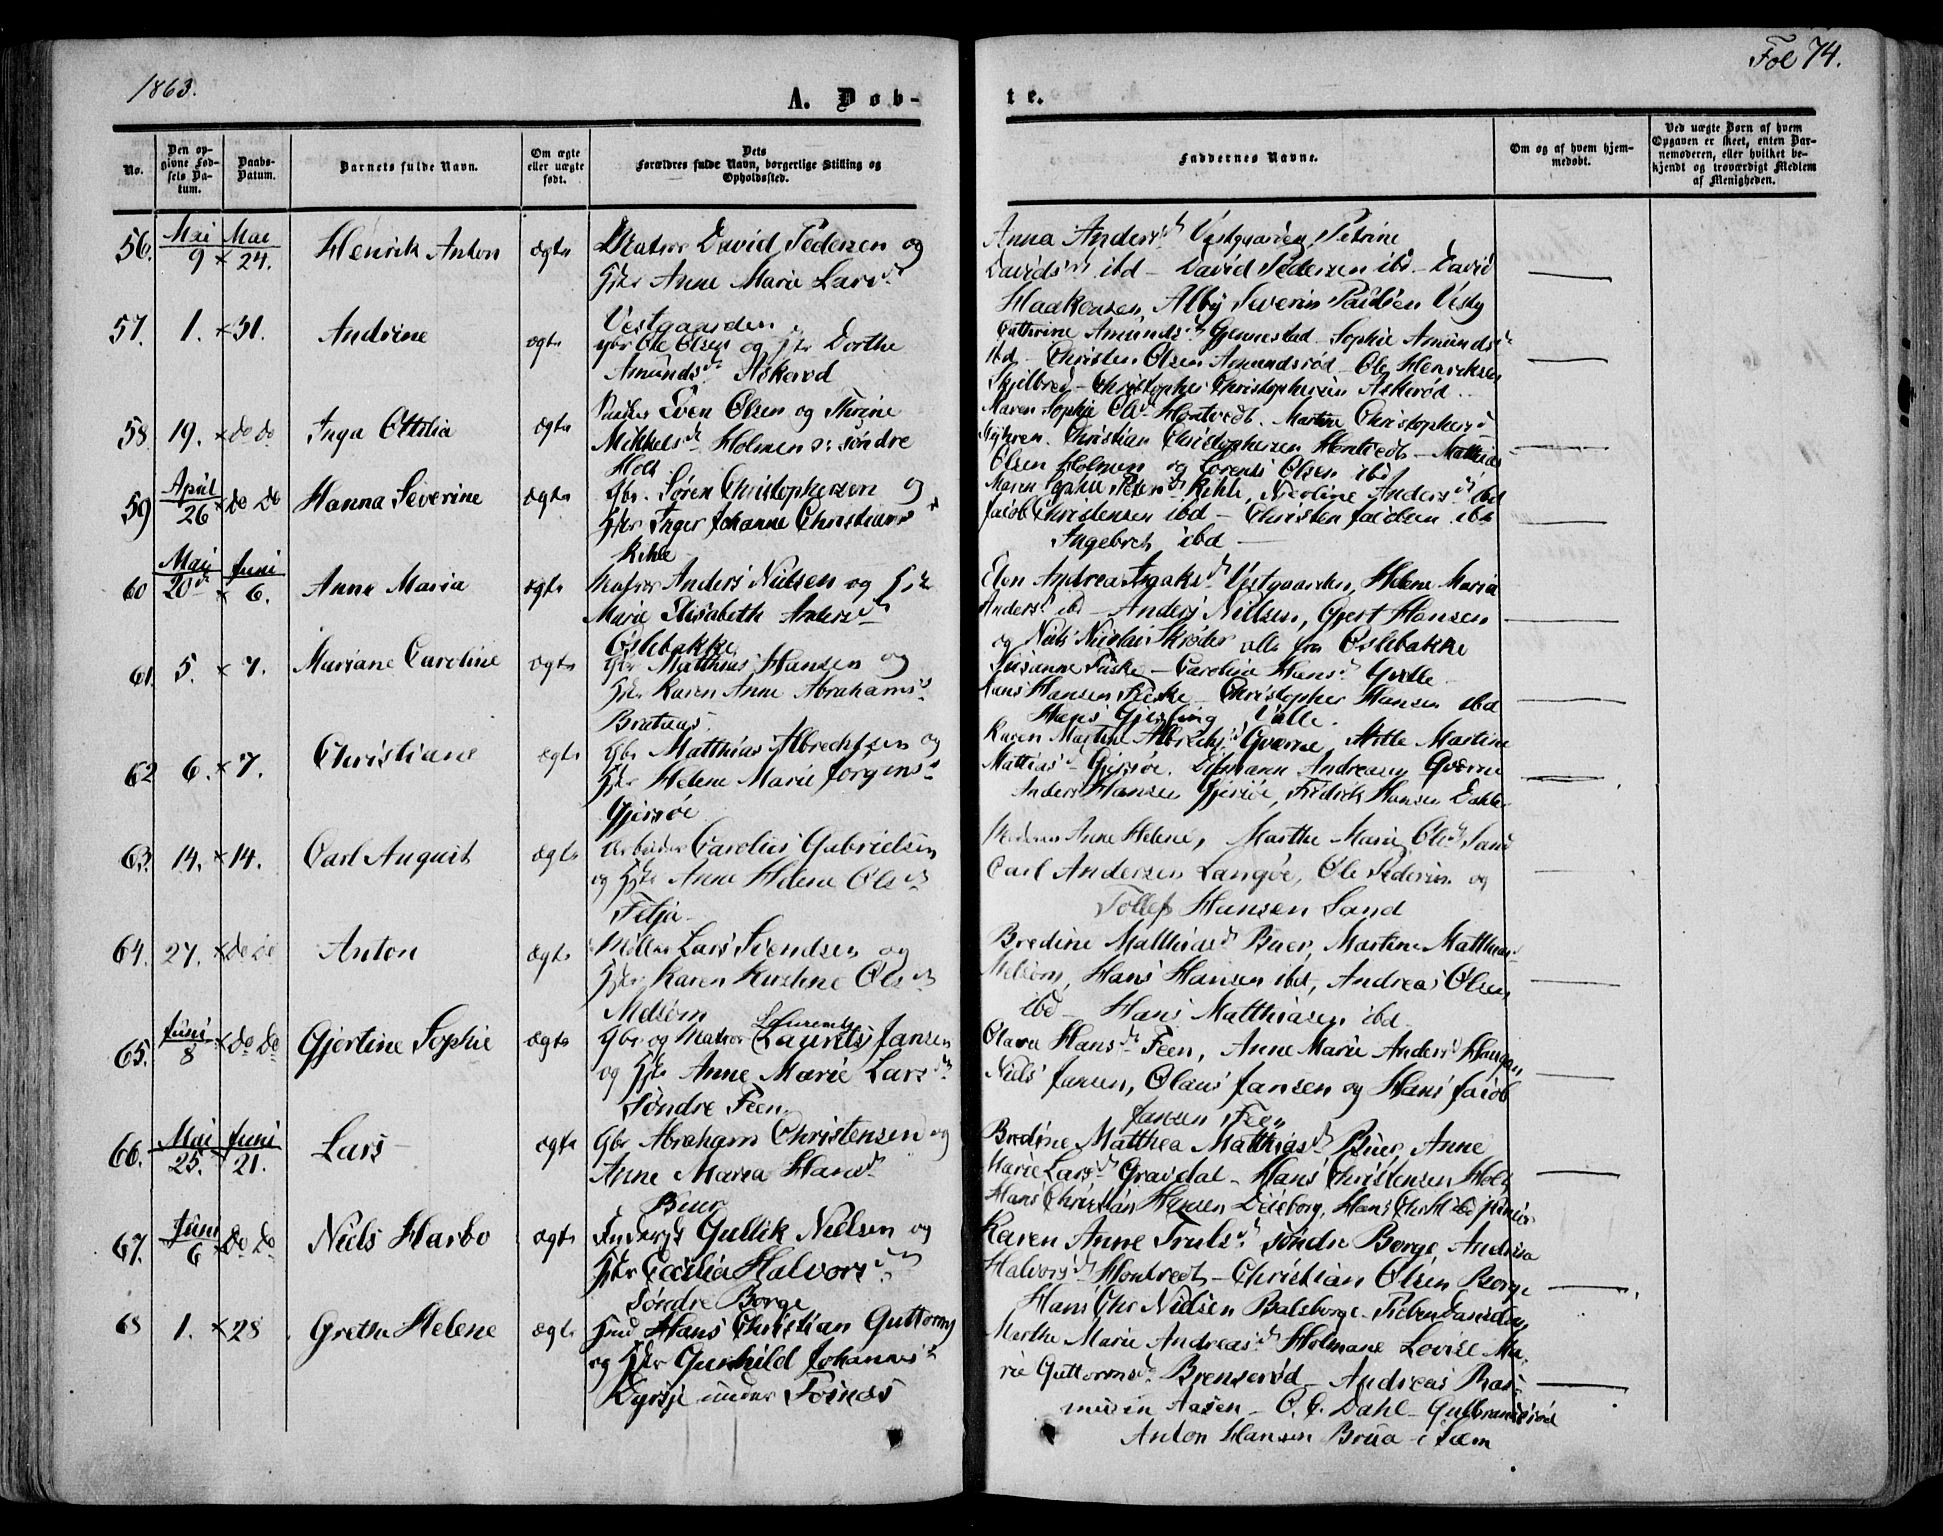 1863.
Fol 74.
A. Døb-
te.
No.
Den op-
givne Fød-
sels Da-
tum.
Daabs-
Datum.
Barnets fulde Navn.
Om ægte
eller uægte
født.
Dets
Forældres fulde Navn, borgerlige Stilling og
Opholdssted.
Faddernes Navne.
Om og af hvem hjem-
medøbt.
Ved uægte Børn af hvem
Opgaven er skeet, enten Bar-
nemoderen, eller hvilket be-
kjendt og troværdigt Medlem
af Menigheden.
56. Mai 9 × Mai 24. Henrik Anton ægte Matros David Pedersen og
Hstr Anne Marie Larsd.
Vestgaarden
Anna Andersd. Vestgaarden, Petrine
Davidsd. ibd – David Pedersen ibd – David
Haakensen, Alby Severin Paulsen Vestg
57. 1. × 31. Andrine ægte gbr Ole Olsen og Hstr Dorthe
Amundsd. Askerød
Cathrine Amundsd. Gjennestad – Sophie Amundsd.
ibd – Christen Olsen Amundsrød – Ole Henriksen
Skjelbred – Christopher Christophersen Askerød.
58 19. × do do Inga Ottilia ægte Sven Olsen og Thrine
Mikkelsd. Holmen u: søndre
Holt
Maren Sophie Olsd. Hontvedt. Martine Christophersd.
Christian Christophersen Hontvedt – Mathias
Olsen Holmen og Lorents Olsen ibd
59 April 26 × do do Hanna Severine ægte Gbr. Søren Christophersen og
Hstr Inger Johanne Christiansd.
Kihle
Maren Sophie Petersd. Kihle, Nicoline Andersd. ibd
Jacob Christensen ibd – Christen Jacobsen ibd
Ingebret ibd –
60 Mai 20de × Juni 6. Anne Maria ægte Matros Anders Nielsen og Hstr
Marie Elisabeth Andersd.
Oslebakke
Elen Andrea Isaksd. Vestgaarden, Helene Maria
Andersd. ibd – Anders Nielsen, Gjert Hansen
og Niels Nicolai Skrøder alle fra Oslebakke
61. 5. × 7. Mariane Caroline ægte Gbr Matthias Hansen og
Hstr Karen Anne Abrahamsd.
Brataas.
Susanne Fuske – Caroline Hansd. Qvelle –
Hans Hansen Fuske – Christopher Hansen ibd
Hans Gjesling
62 6. × 7. Christiane ægte Gbr Matthias Albrechtsen og
Hstr Helene Marie Jørgensd.
Gjersøe
Karen Martine Albrechtsd. Qværne,
Mattiasd. Gjersøe. Andreasen Qværne
Anders Hansen Gjersøe, Fredrik Hansen Dahle
63. 14. × 14. Carl August ægte Arbeider Carolius Gabrielsen
og Hstr Anne Helene Olsd.
Fetja.
Moderen Anne Helene, Marthe Marie Olsd. Sand
Carl Andersen Langøe, Ole Pedersen og
Tollef Hansen Sand
64. 27. × do do Anton ægte Møller Lars Svendsen og
Hstr Karen Kirstine Olsd.
Melsom
Bredine Matthiasd. Buer, Martine Matthiasd.
Melsom, Hans Hansen ibd, Andreas Olsen
ibd – Hans Matthiasen ibd
65. Juni 8 × do do Gjertine Sophie ægte Gbr og Matros Laurits Jansen
og Hstr Anne Marie Larsd.
Søndre Feen.
Olava Hansd. Feen, Anne Marie Andersd. Haugan
Niels Jansen, Olaus Jansen og Hans Jacob
Jansen Feen
66. Mai 25. × Juni 21. Lars – ægte Gbr Abraham Christensen og
Anne Maria Hansd.
Buer
Bredine Matthea Matthiasd. Buer, Anne
Marie Larsd. Gravdal – Hans Christensen Holt
Hans Christian Hansen Deieborg, Hans Chr. H ibd junior
67. Juni 6 × do do Niels Harbo ægte Gullik Nielsen og
Hstr Cecilia Halvorsd.
Søndre Borge
Karen Anne Trulsd. Søndre Borge, Andrea
Halvorsd. Hontvedt – Christian Olsen Borge
Hans Chr Nielsen Balsborge.
68 1. × 28 Grethe Helene ægte Hmd Hans Christian Guttorms
og Hstr Gunhild Johannesd.
under Foinæs
Marthe Marie Andreasd. Holmane Lovise Ma-
rie Guttormsd. Brenserød – Andreas Ras-
mussen Aasen – O. C. Dahl – Gulbrandsrød
Anton Hansen Brua i Sæm